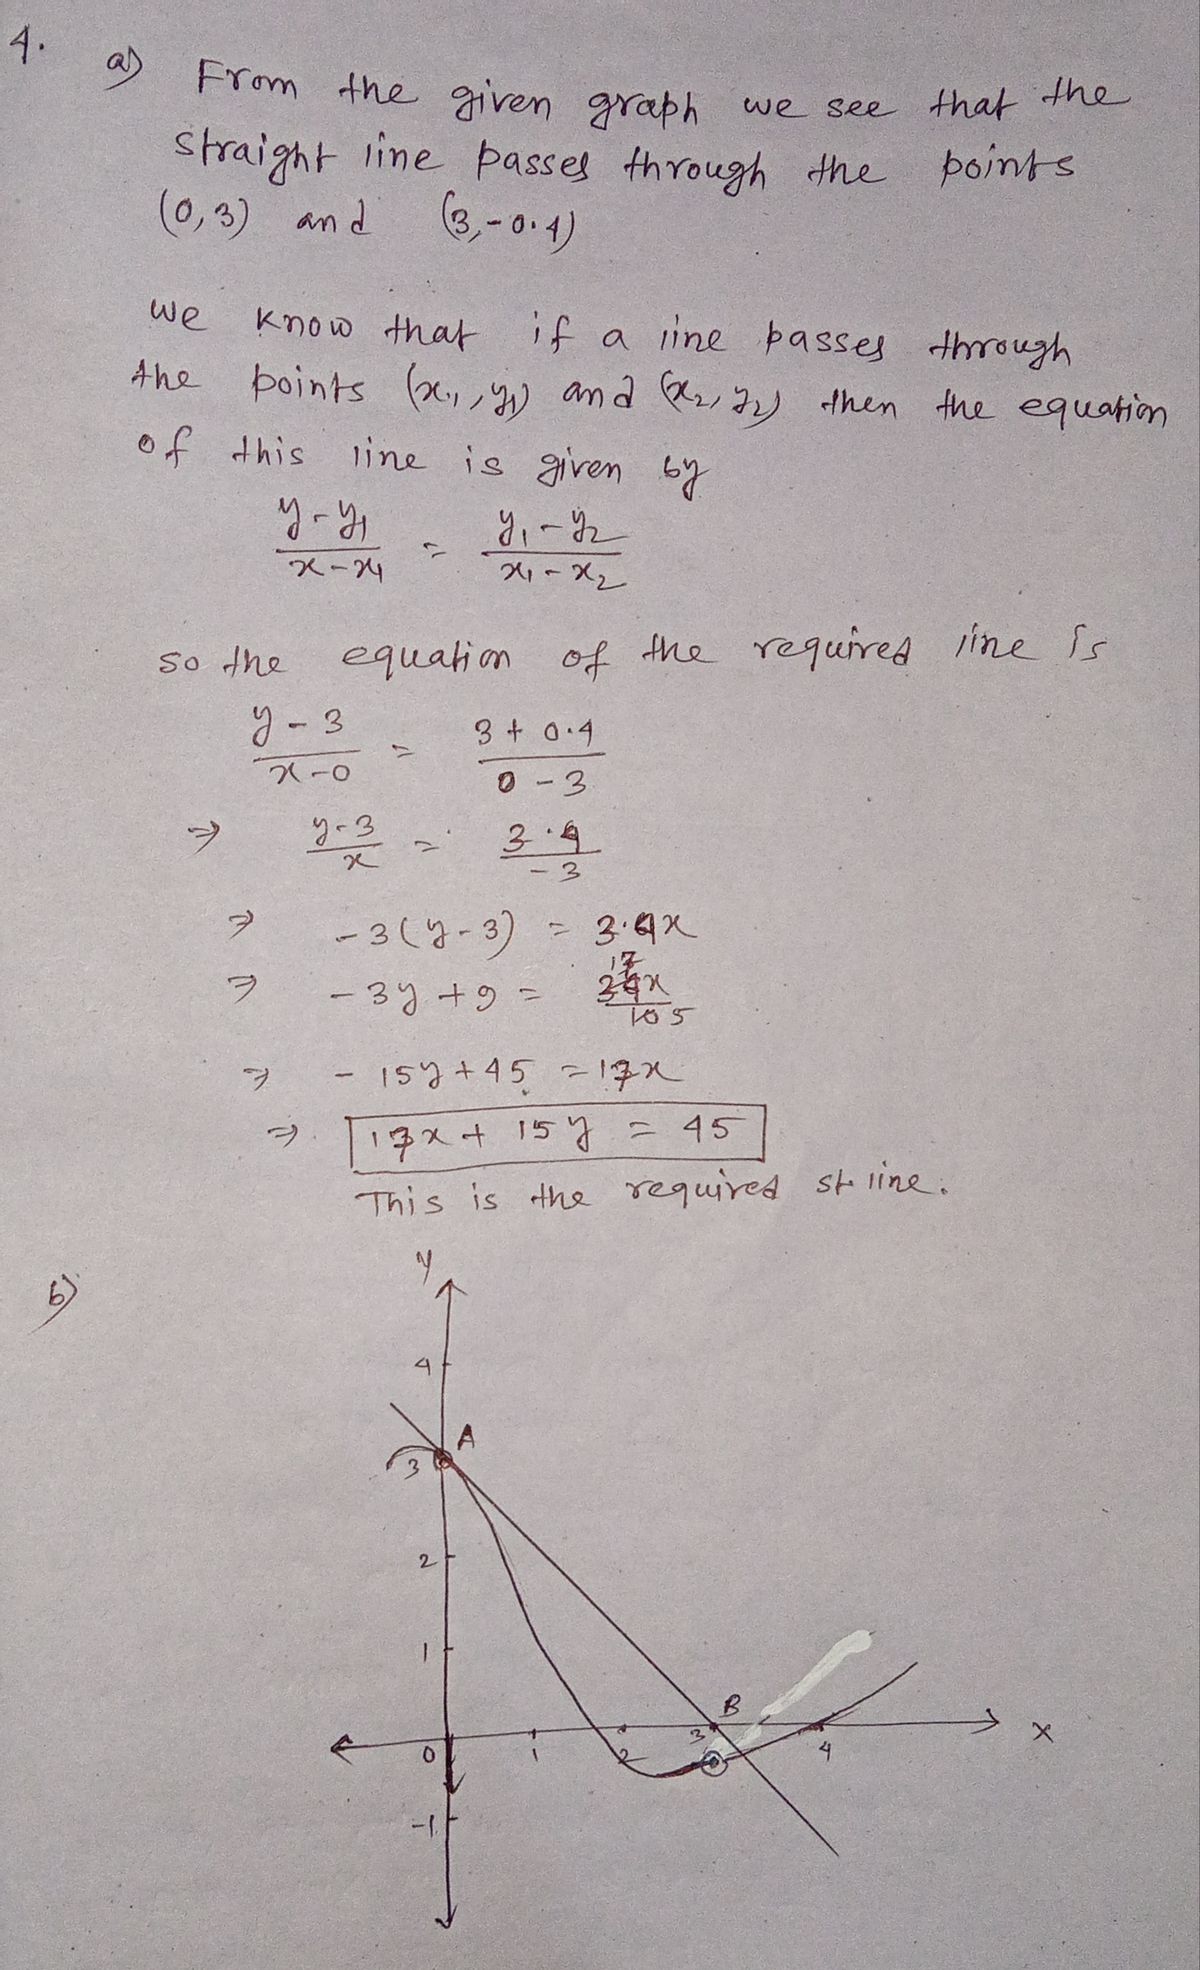 4.
a) From the given graph we see that the
straight line passes through the points
(0,3) and (3,-0.4)
we know that if a line passes through
the points (x₁,y₁) and (x₂,y₂) then the equation
of this line is given by
(y-y₁)/(x-x₁) = (y₁-y₂)/(x₁-x₂)
so the equation of the required line is
(y-3)/(x-0) = (3+0.4)/(0-3)
⇒ (y-3)/x = 3.4/-3
⇒ -3(y-3) = 3.4x
⇒ -3y+9 = 17 34x/10 5
⇒ -15y+45 = 17x
⇒ 17x+15y = 45
This is the required st. line.
b)
y
4
A
3
2
1
B
0 1 2 3 4 x
-1